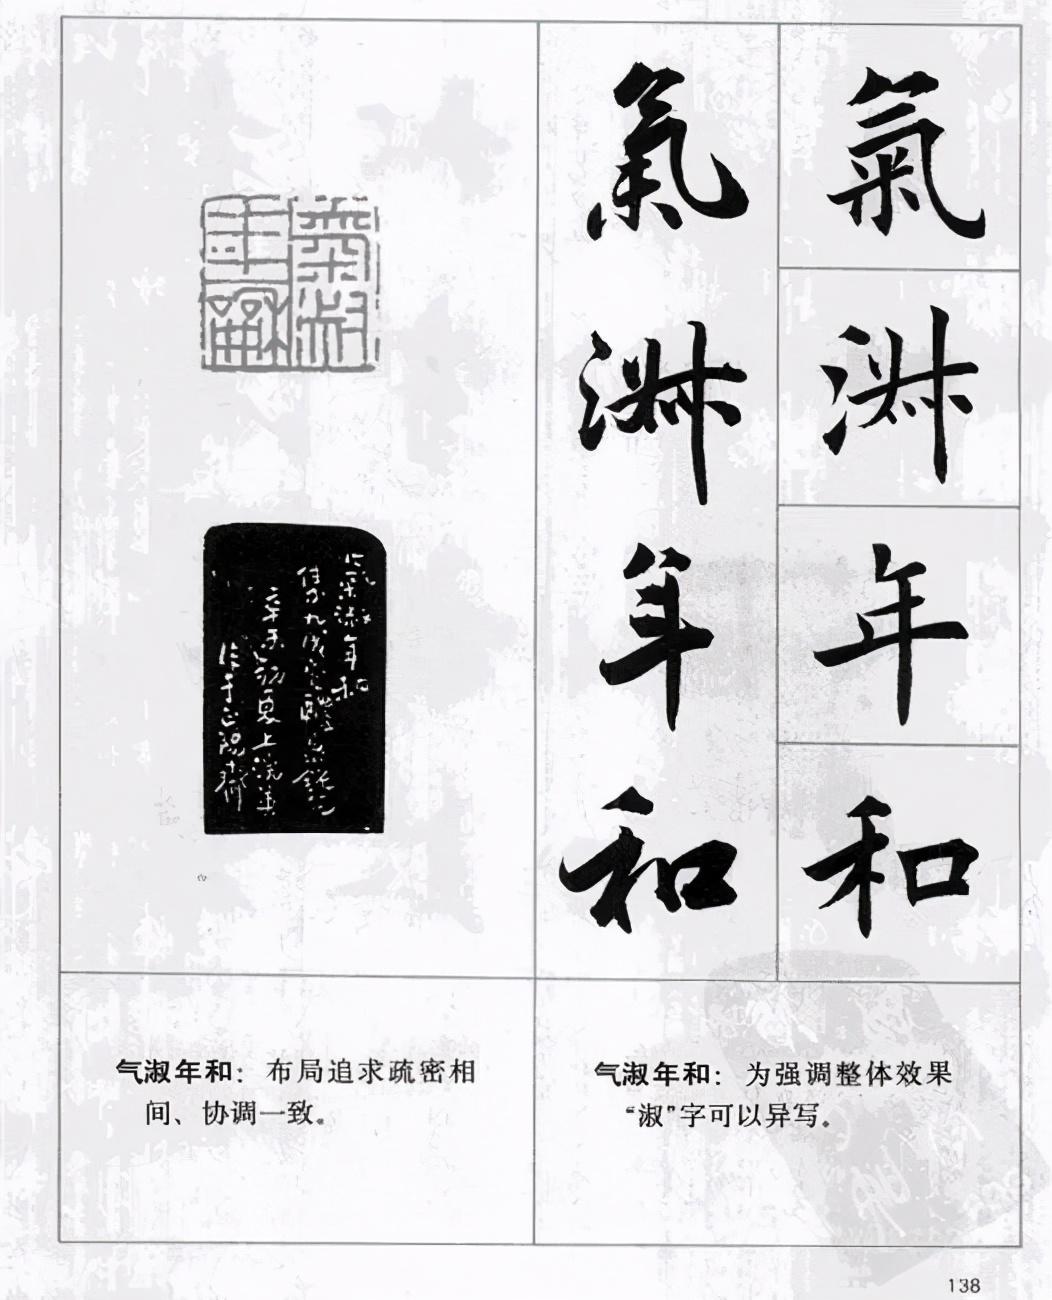 氣淑年和
氣淑年和
氣淑
年龢
氣淑年和
集九成宫醴泉銘
辛未初夏上浣
作于
气淑年和：布局追求疏密相
间、协调一致。
气淑年和：为强调整体效果
“淑”字可以异写。
138